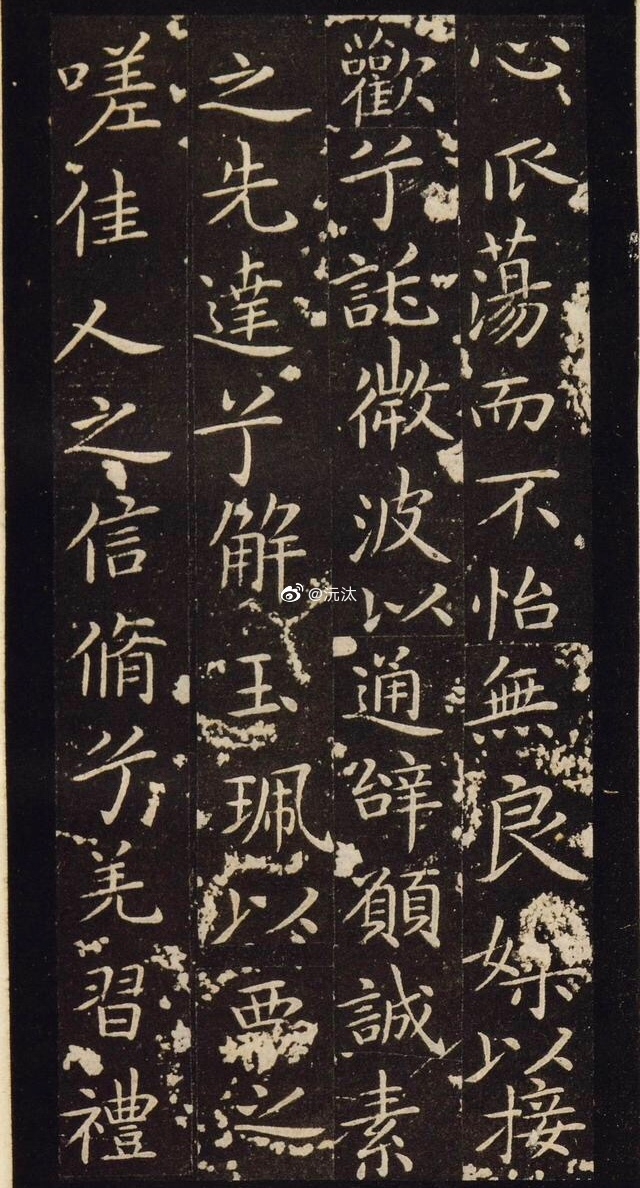 心蕩而不怡無良媒以接
歡兮託微波以通辭願誠素
之先達兮解玉珮以要之
嗟佳人之信脩兮羌習禮
@沅汰